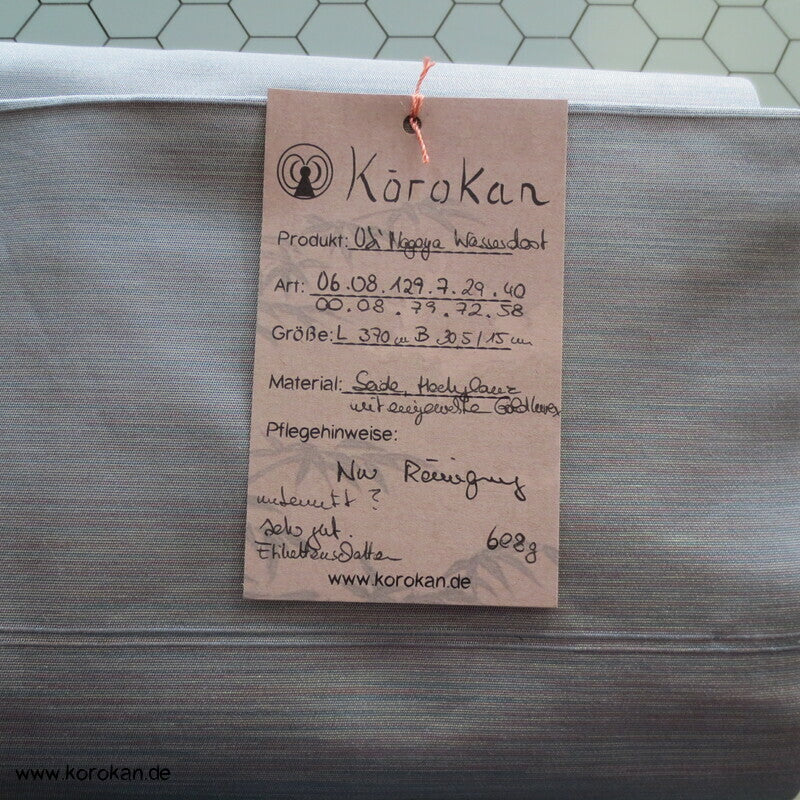 Kōrokan
Produkt: Obi Nagoya Wasserdost
Art: 06.08.129.7.29.40
00.08.79.72.58
Größe: L 370 cm B 30,5/15 cm
Material: Seide, Hochglanz
mit eingewebte Goldlurex
Pflegehinweise:
Nur Reinigung
?
sehr gut.
608g
www.korokan.de
www.korokan.de